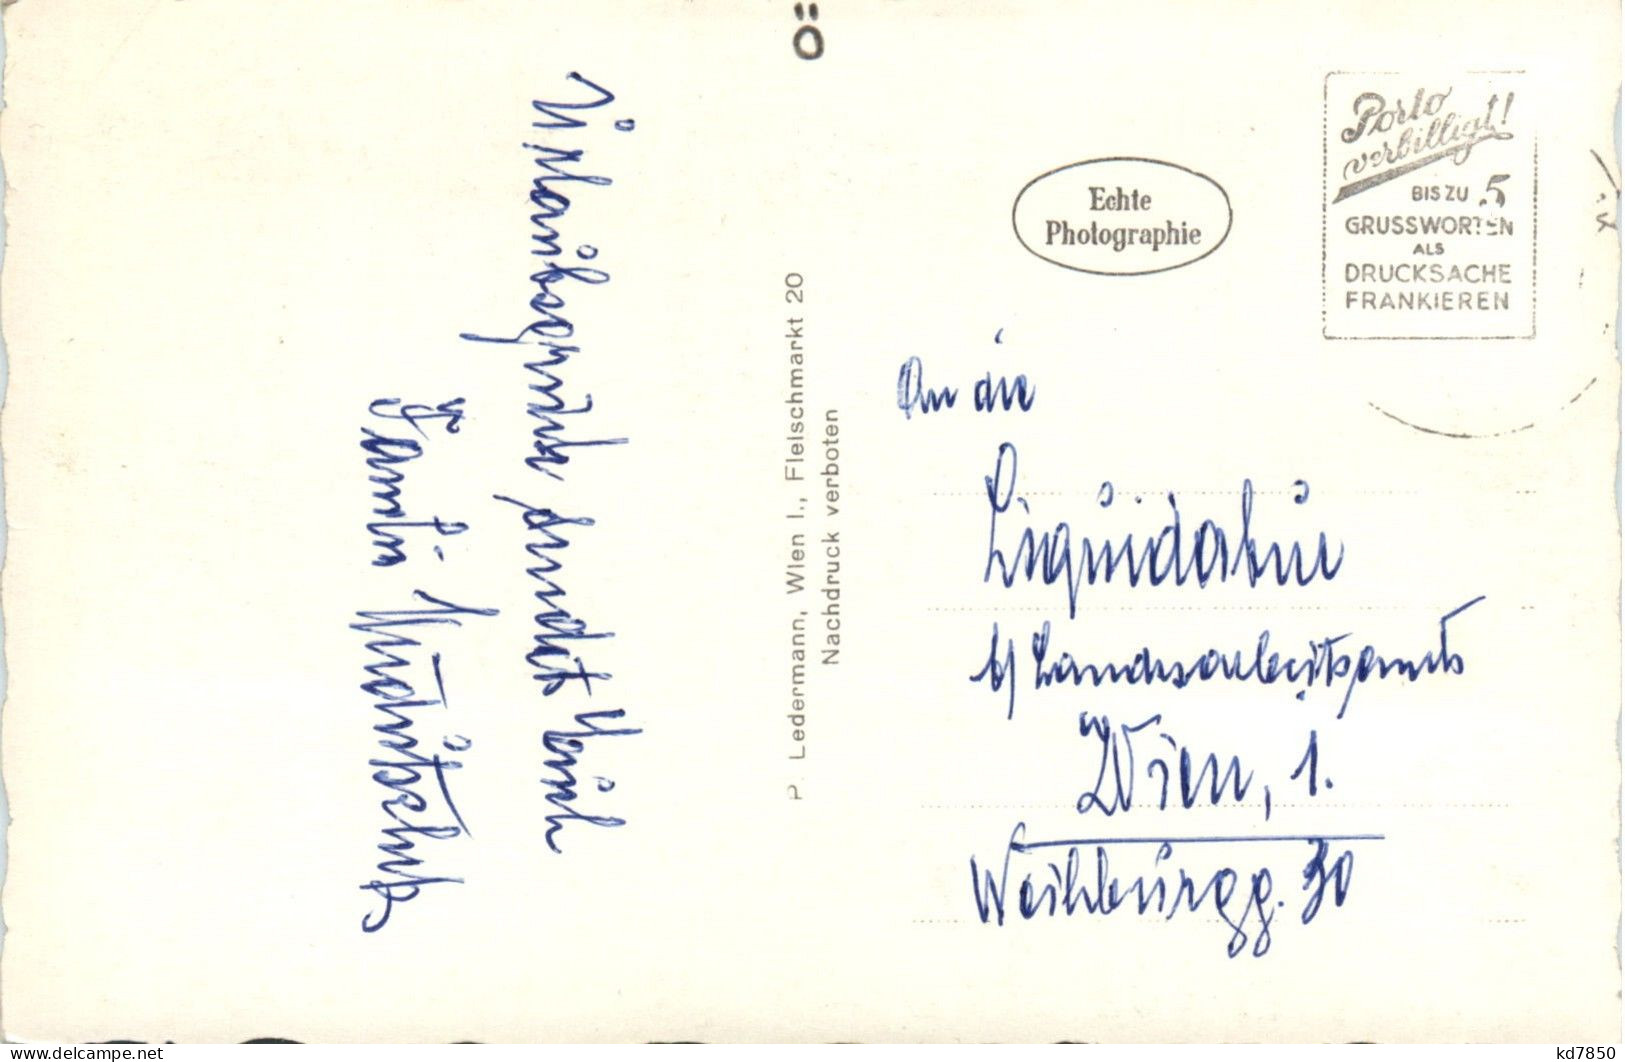 Ö
Urlaubsgrüße sendet Euch
Familie
P. Ledermann, Wien I., Fleischmarkt 20
Nachdruck verboten
Echte
Photographie
Porto
verbilligt!
BIS ZU 5
GRUSSWORTEN
ALS
DRUCKSACHE
FRANKIEREN
An die
b/ Landesarbeitsamts
Wien, 1.
Weihburgg. 30
kd7850